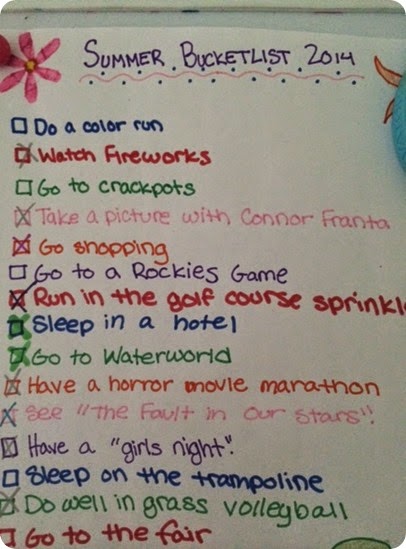 Summer Bucketlist 2014
Do a color run
Watch Fireworks
Go to crackpots
Take a picture with Connor Franta
Go shopping
Go to a Rockies Game
Run in the golf course sprinkl
Sleep in a hotel
Go to Waterworld
Have a horror movie marathon
See "The Fault in Our Stars".
Have a "girls night".
Sleep on the trampoline
Do well in grass volleyball
Go to the fair